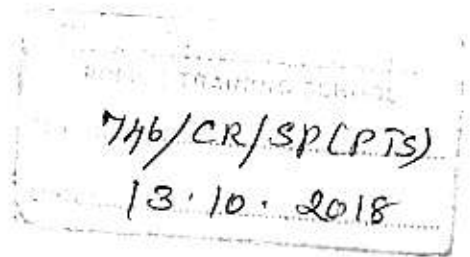 TRAINING
746/CR/SP(PTS)
13.10.2018